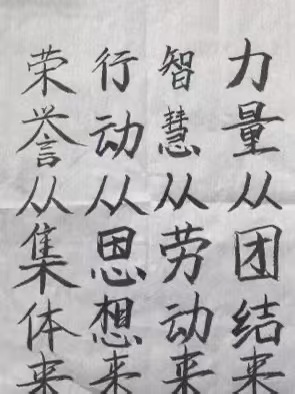 力量从团结来
智慧从劳动来
行动从思想来
荣誉从集体来